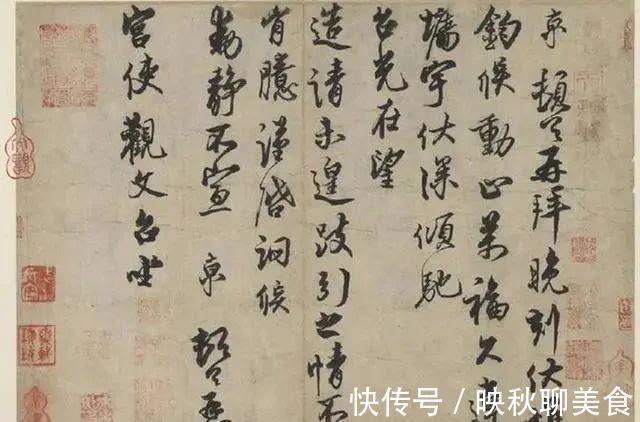 京 頓首再拜晚刻伏惟
鈞候動止萬福久違
墉宇伏深傾馳
台光在望
造請未遑跂引之情不
胷臆謹啓詢候
動靜不宣 京 頓首再
宮使觀文台坐
快传号 / 映秋聊美食